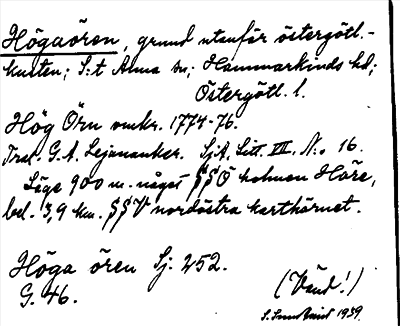 Högaören, grund utanför östergötl.-
kusten; S:t Anna sn; Hammarkinds hd;
Östergötl. l.
Hög Örn omkr. 1774-76.
G. A. Lejonanker. SjA, Litt. III. N:o 16.
Läge 900 m. något SSÖ holmen Höre,
bel. 3,9 km. SSV nordöstra karthörnet.
Höga ören Sj. 252.
G. 46.
(Vänd!)
1939.